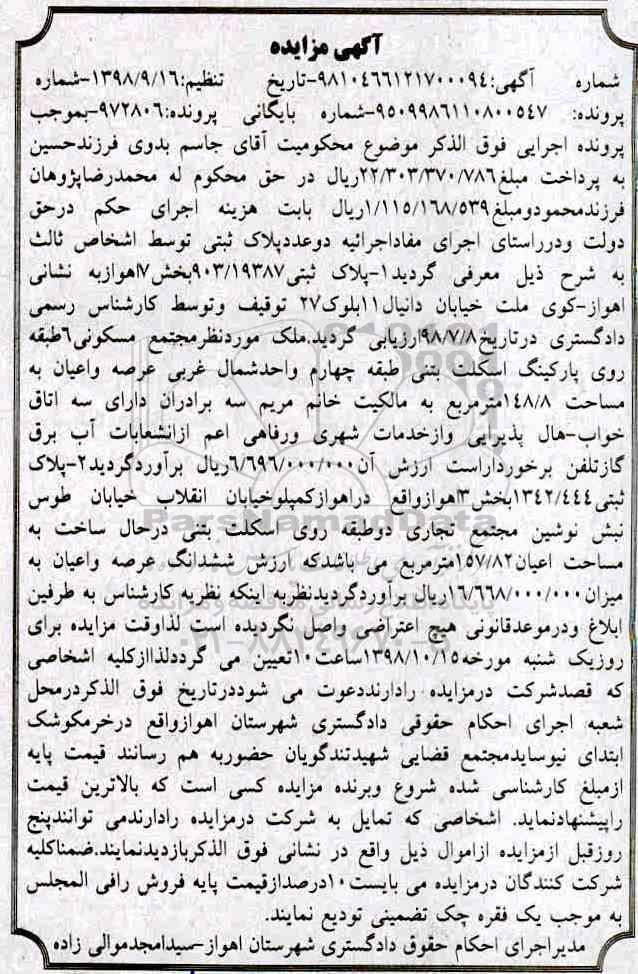 آگهی مزایده
شماره آگهی:۹۸۱۰۴۶۶۱۲۱۷۰۰۰۹۴-تاریخ تنظیم:۱۳۹۸/۹/۱۶-شماره
پرونده: ۹۵۰۹۹۸۶۱۱۰۸۰۰۵۴۷-شماره بایگانی پرونده:۹۷۲۸۰۶-بموجب
پرونده اجرایی فوق الذکر موضوع محکومیت آقای جاسم بدوی فرزندحسین
به پرداخت مبلغ۲۲/۳۰۳/۳۷۰/۷۸۶ریال در حق محکوم له محمدرضاپژوهان
فرزندمحمودومبلغ۱/۱۱۵/۱۶۸/۵۳۹ریال بابت هزینه اجرای حکم درحق
دولت ودرراستای اجرای مفاداجرائیه دوعددپلاک ثبتی توسط اشخاص ثالث
به شرح ذیل معرفی گردید۱-پلاک ثبتی۹۰۳/۱۹۳۸۷بخش۷اهوازبه نشانی
اهواز-کوی ملت خیابان دانیال۱۱بلوک۲۷ توقیف وتوسط کارشناس رسمی
دادگستری درتاریخ۹۸/۷/۸ارزیابی گردید.ملک موردنظرمجتمع مسکونی۶طبقه
روی پارکینگ اسکلت بتنی طبقه چهارم واحدشمال غربی عرصه واعیان به
مساحت ۱۴۸/۸مترمربع به مالکیت خانم مریم سه برادران دارای سه اتاق
خواب-هال پذیرایی وازخدمات شهری ورفاهی اعم ازانشعابات آب برق
گازتلفن برخورداراست ارزش آن۶/۶۹۶/۰۰۰/۰۰۰ریال برآوردگردید۲-پلاک
ثبتی۱۳۴۲/۴۴۴بخش۳اهوازواقع دراهوازکمپلوخیابان انقلاب خیابان طوس
نبش نوشین مجتمع تجاری دوطبقه روی اسکلت بتنی درحال ساخت به
مساحت اعیان۱۵۷/۸۲مترمربع می باشدکه ارزش ششدانگ عرصه واعیان به
میزان۱۶/۶۶۸/۰۰۰/۰۰۰ریال برآوردگردیدنظربه اینکه نظریه کارشناس به طرفین
ابلاغ ودرموعدقانونی هیچ اعتراضی واصل نگردیده است لذاوقت مزایده برای
روزیک شنبه مورخه۱۳۹۸/۱۰/۱۵ساعت۱۰تعیین می گرددلذاازکلیه اشخاصی
که قصدشرکت درمزایده رادارنددعوت می شوددرتاریخ فوق الذکردرمحل
شعبه اجرای احکام حقوقی دادگستری شهرستان اهوازواقع درخرمکوشک
ابتدای نیوسایدمجتمع قضایی شهیدتندگویان حضوربه هم رسانند قیمت پایه
ازمبلغ کارشناسی شده شروع وبرنده مزایده کسی است که بالاترین قیمت
راپیشنهادنماید. اشخاصی که تمایل به شرکت درمزایده رادارندمی توانندپنج
روزقبل ازمزایده ازاموال ذیل واقع در نشانی فوق الذکربازدیدنمایند.ضمناکلیه
شرکت کنندگان درمزایده می بایست۱۰درصدازقیمت پایه فروش رافی المجلس
به موجب یک فقره چک تضمینی تودیع نمایند.
مدیراجرای احکام حقوق دادگستری شهرستان اهواز-سیدامجدموالی زاده
ParsNamadData